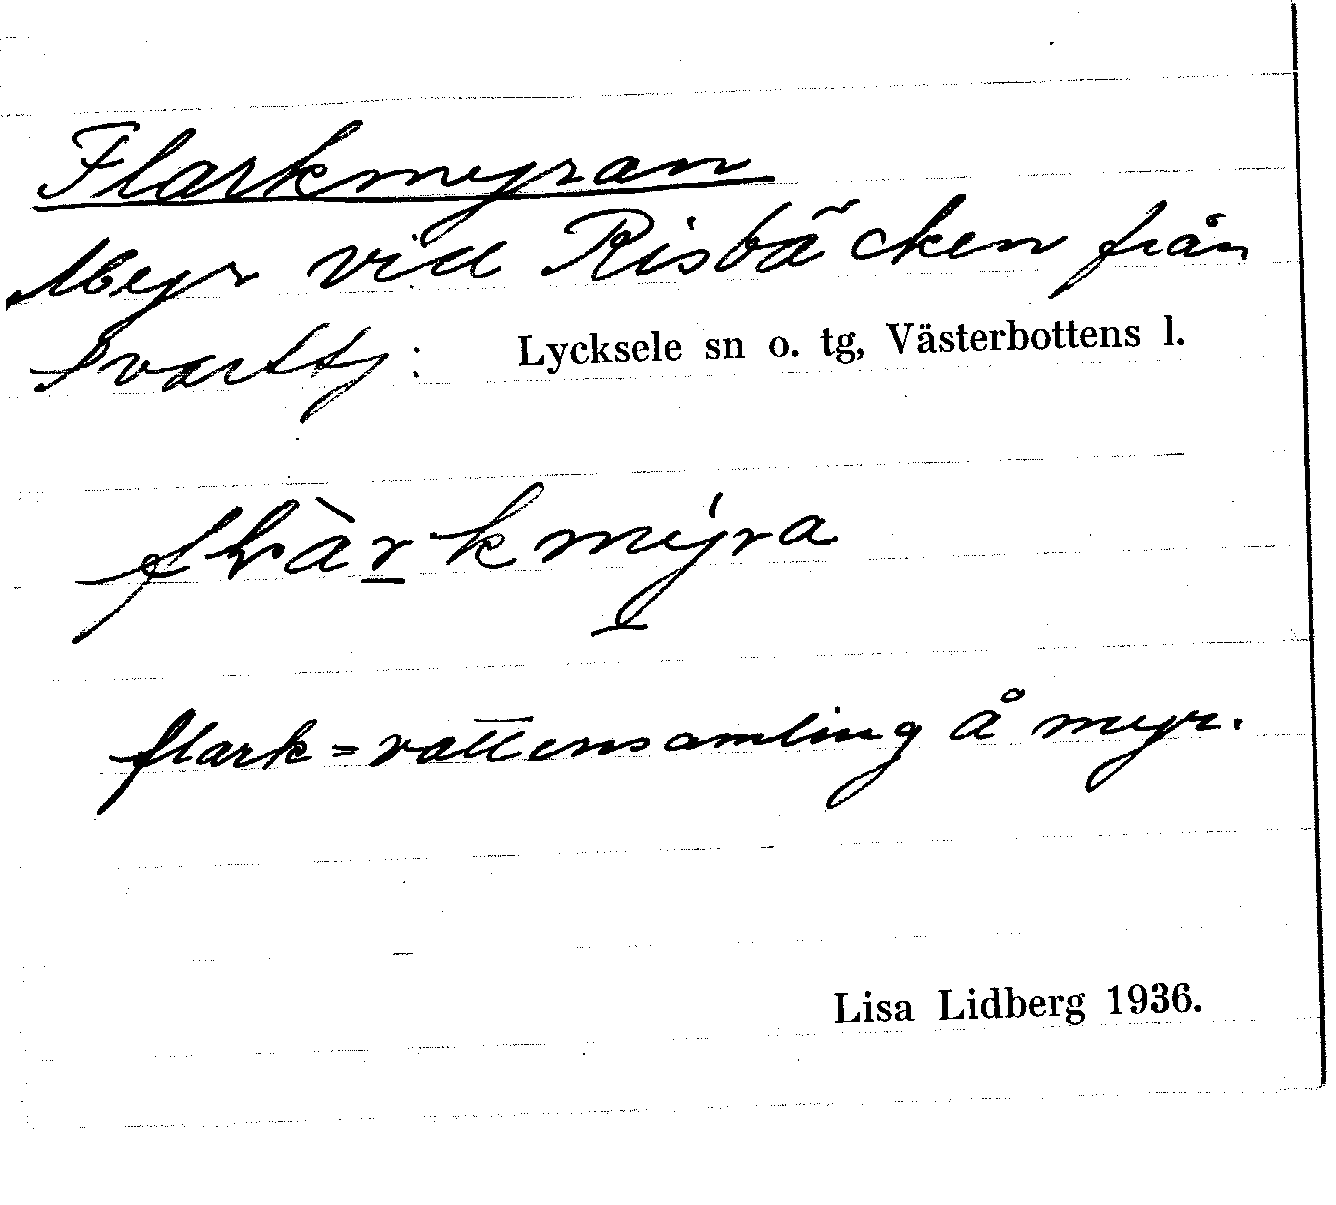 Flarkmyran
Myr vid Risbäcken från
Svarttj: Lycksele sn o. tg, Västerbottens l.
flàrkmýra
flark = vattensamling å myr.
Lisa Lidberg 1936.